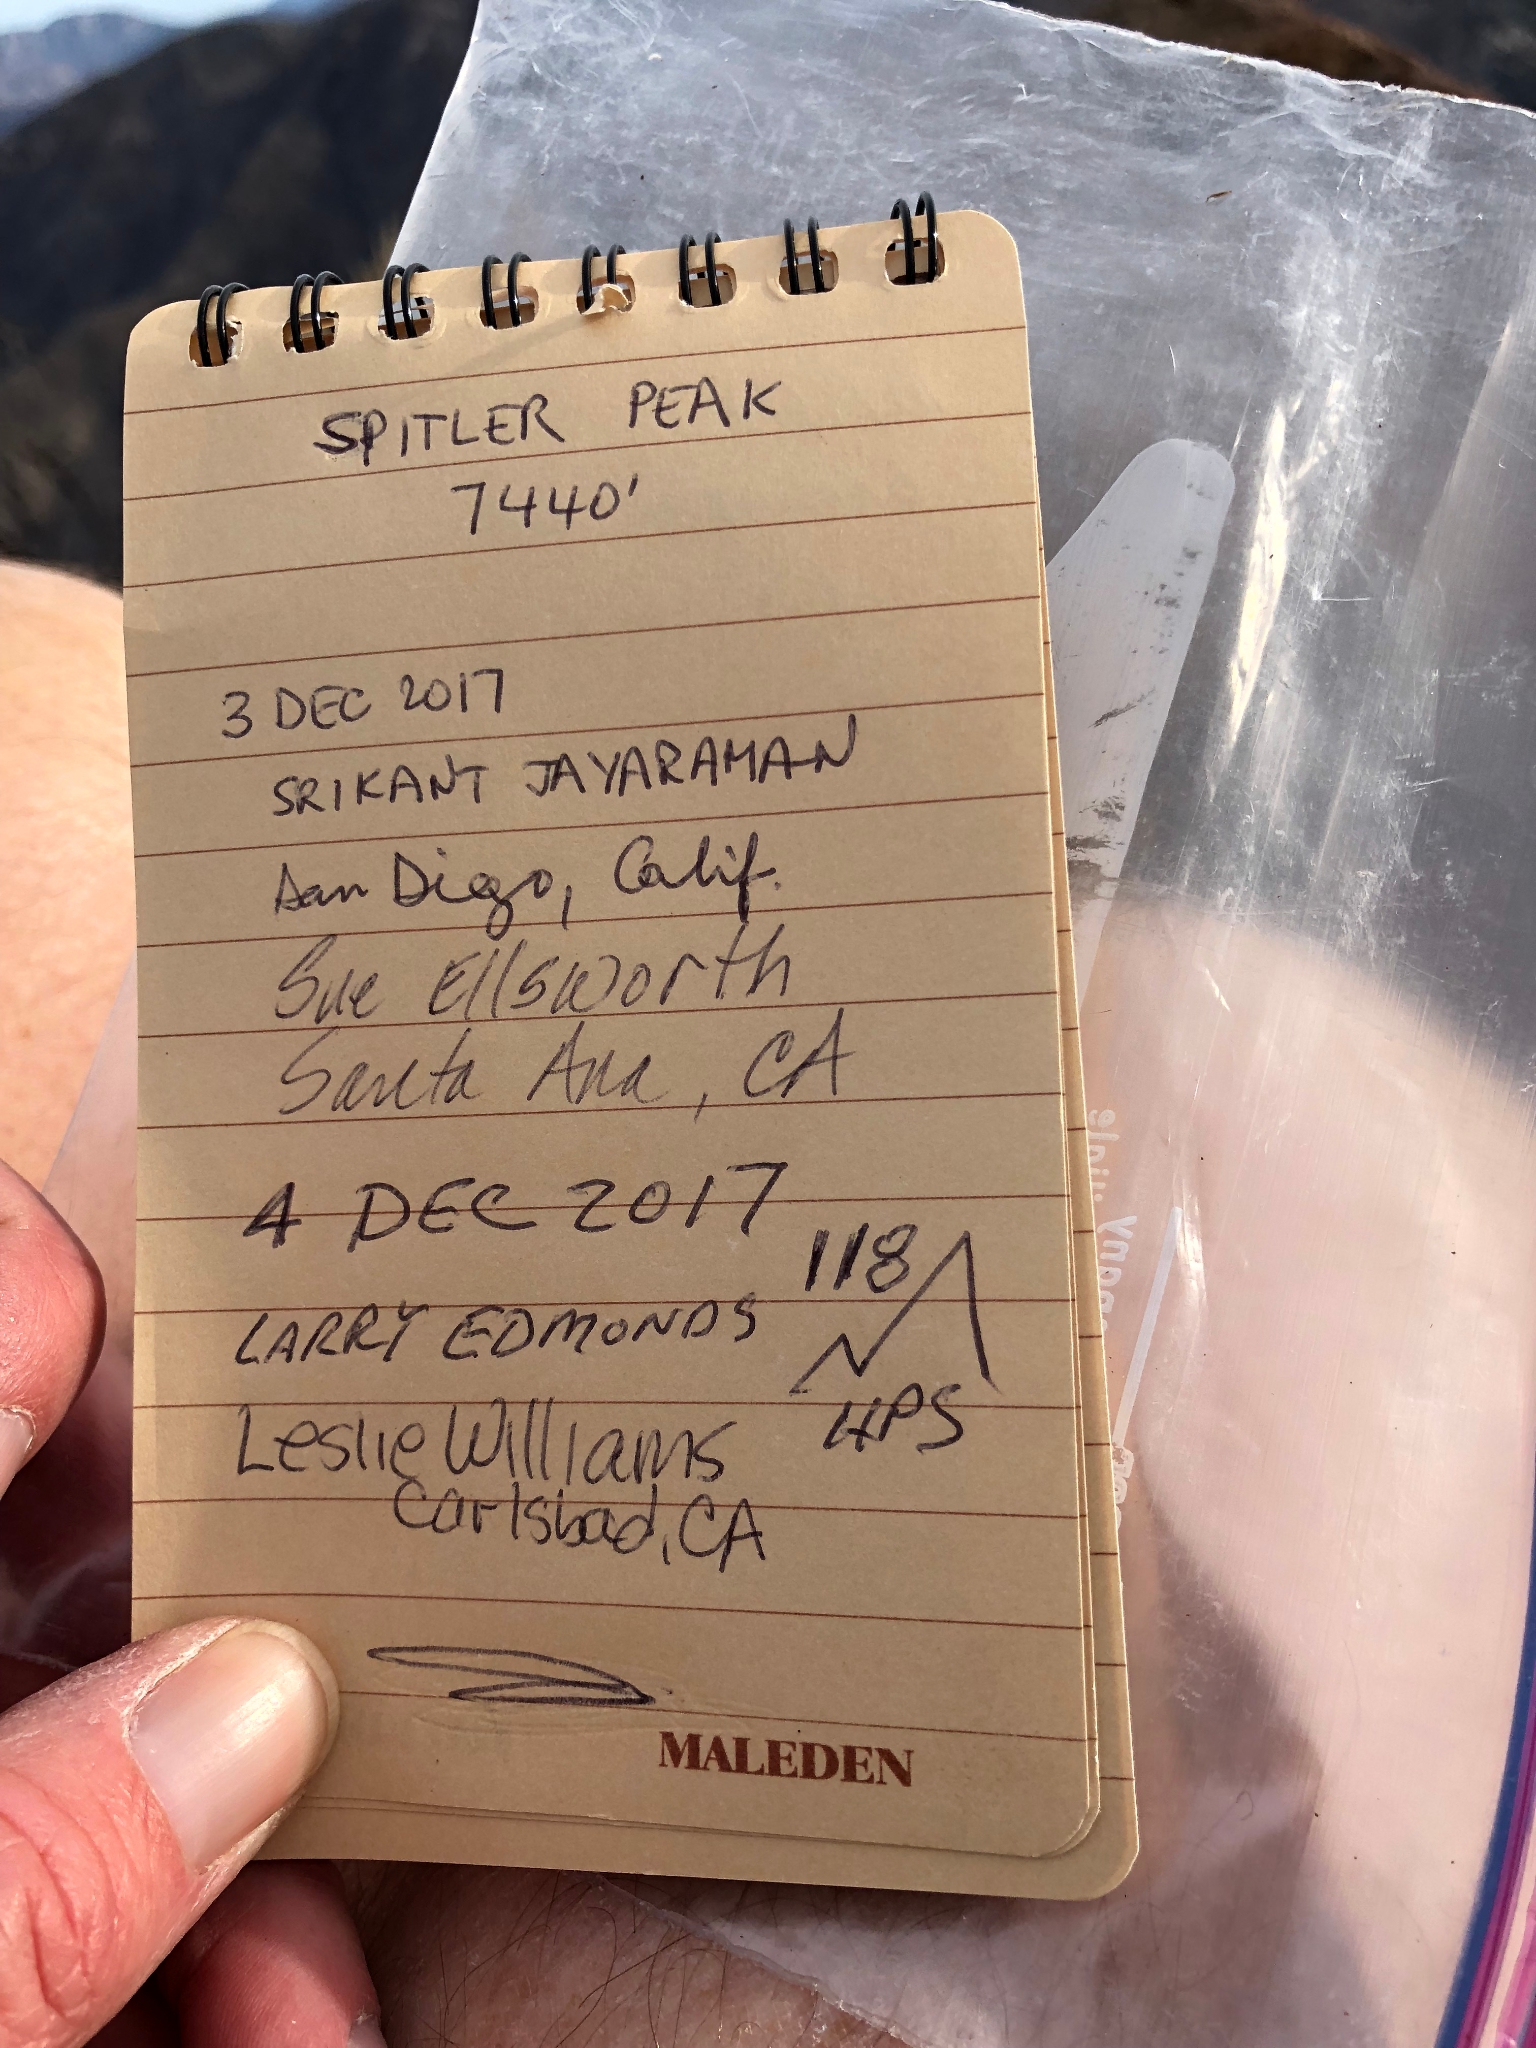 SPITLER PEAK
7440'
3 DEC 2017
SRIKANT JAYARAMAN
San Diego, Calif.
Sue Ellsworth
Santa Ana, CA
4 DEC 2017
118
LARRY EDMONDS
HPS
Leslie Williams
Carlsbad, CA
MALEDEN